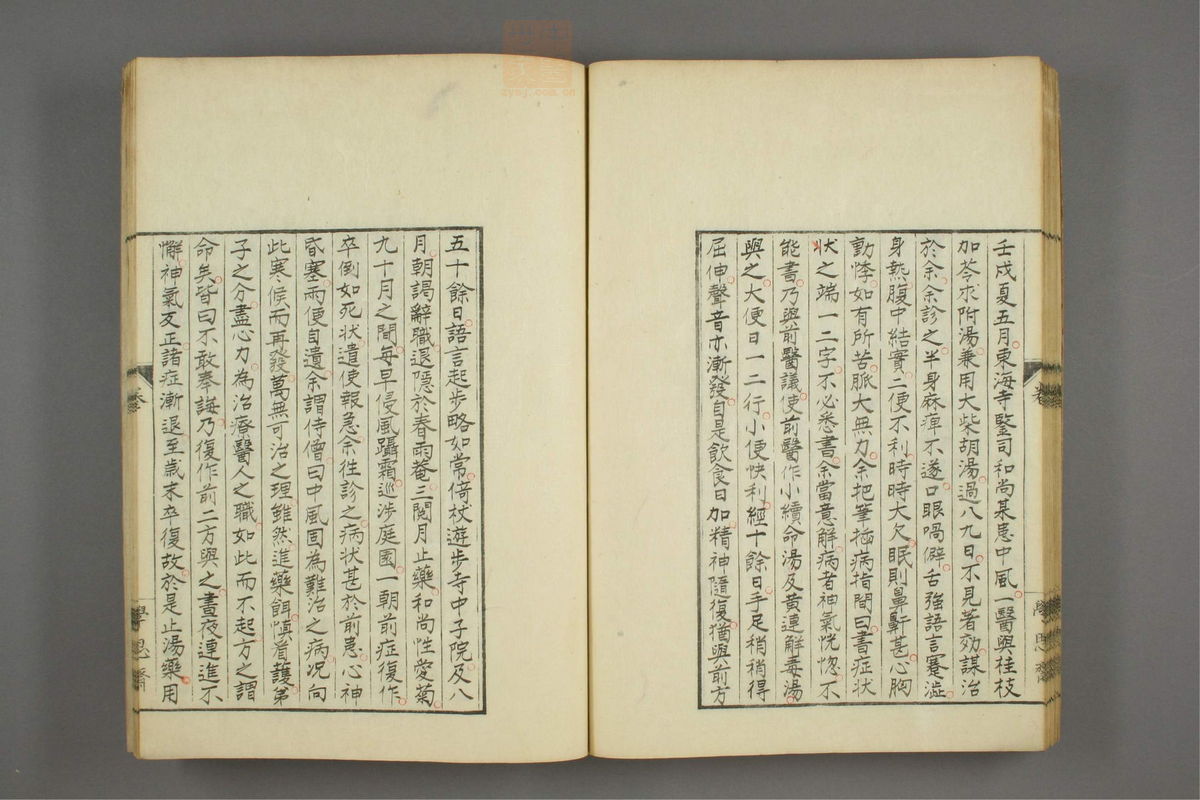 壬戌夏五月東海寺鑒司和尚某患中風一醫與桂枝
加苓朮附湯兼用大柴胡湯過八九日不見著効謀治
於余余診之半身麻痺不遂口眼喎僻舌強語言蹇澁
身熱腹中結實二便不利時時大欠眠則鼻鼾甚心胸
動悸如有所苦脈大無力余把筆搖病指間曰書症状
状之端一二字不必悉書余當意解病者神氣恍惚不
能書乃與前醫議使前醫作小續命湯及黄連解毒湯
與之大便日一二行小便快利經十餘日手足稍稍得
屈伸聲音亦漸發自是飲食日加精神隨復猶與前方
五十餘日語言起步略如常倚杖遊步寺中子院及八
月朝謁辭職退隱於春雨菴三閲月止藥和尚性愛菊
九十月之間每早侵風躡霜巡涉庭園一朝前症復作
卒倒如死状遣使報急余往診之病状甚於前患心神
昏塞兩便自遺余謂侍僧曰中風固為難治之病况向
此寒候而再發萬無可治之理雖然進藥餌慎看護第
子之分盡心力為治療醫人之職如此而不起方之謂
命矣皆曰不敢奉誨乃復作前二方與之晝夜連進不
懈神氣反正諸症漸退至歲末卒復故於是止湯藥用
卷
學思齋